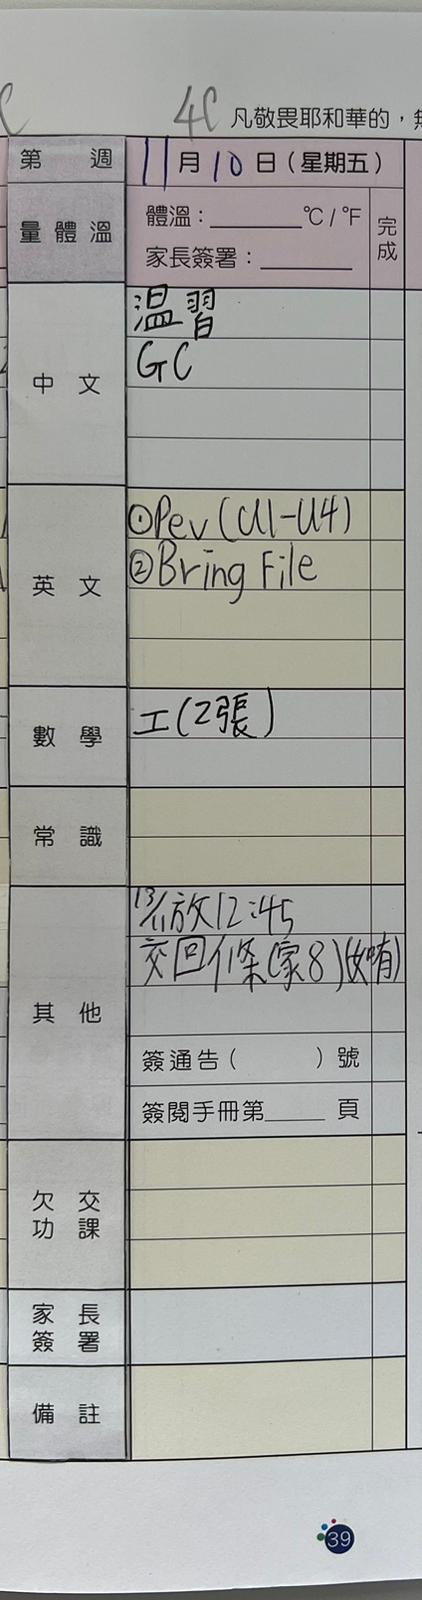 4C 凡敬畏耶和華的，
第 週 11月10日(星期五)
量體溫 體溫：______°C/°F 完成
家長簽署：______
中文 温習
GC
英文 ①Rev(U1-U4)
②Bring File
數學 工(2張)
常識
其他 13/11放12:45
交回條(家8)(如有)
簽通告( )號
簽閱手冊第____頁
欠交功課
家長簽署
備註
39